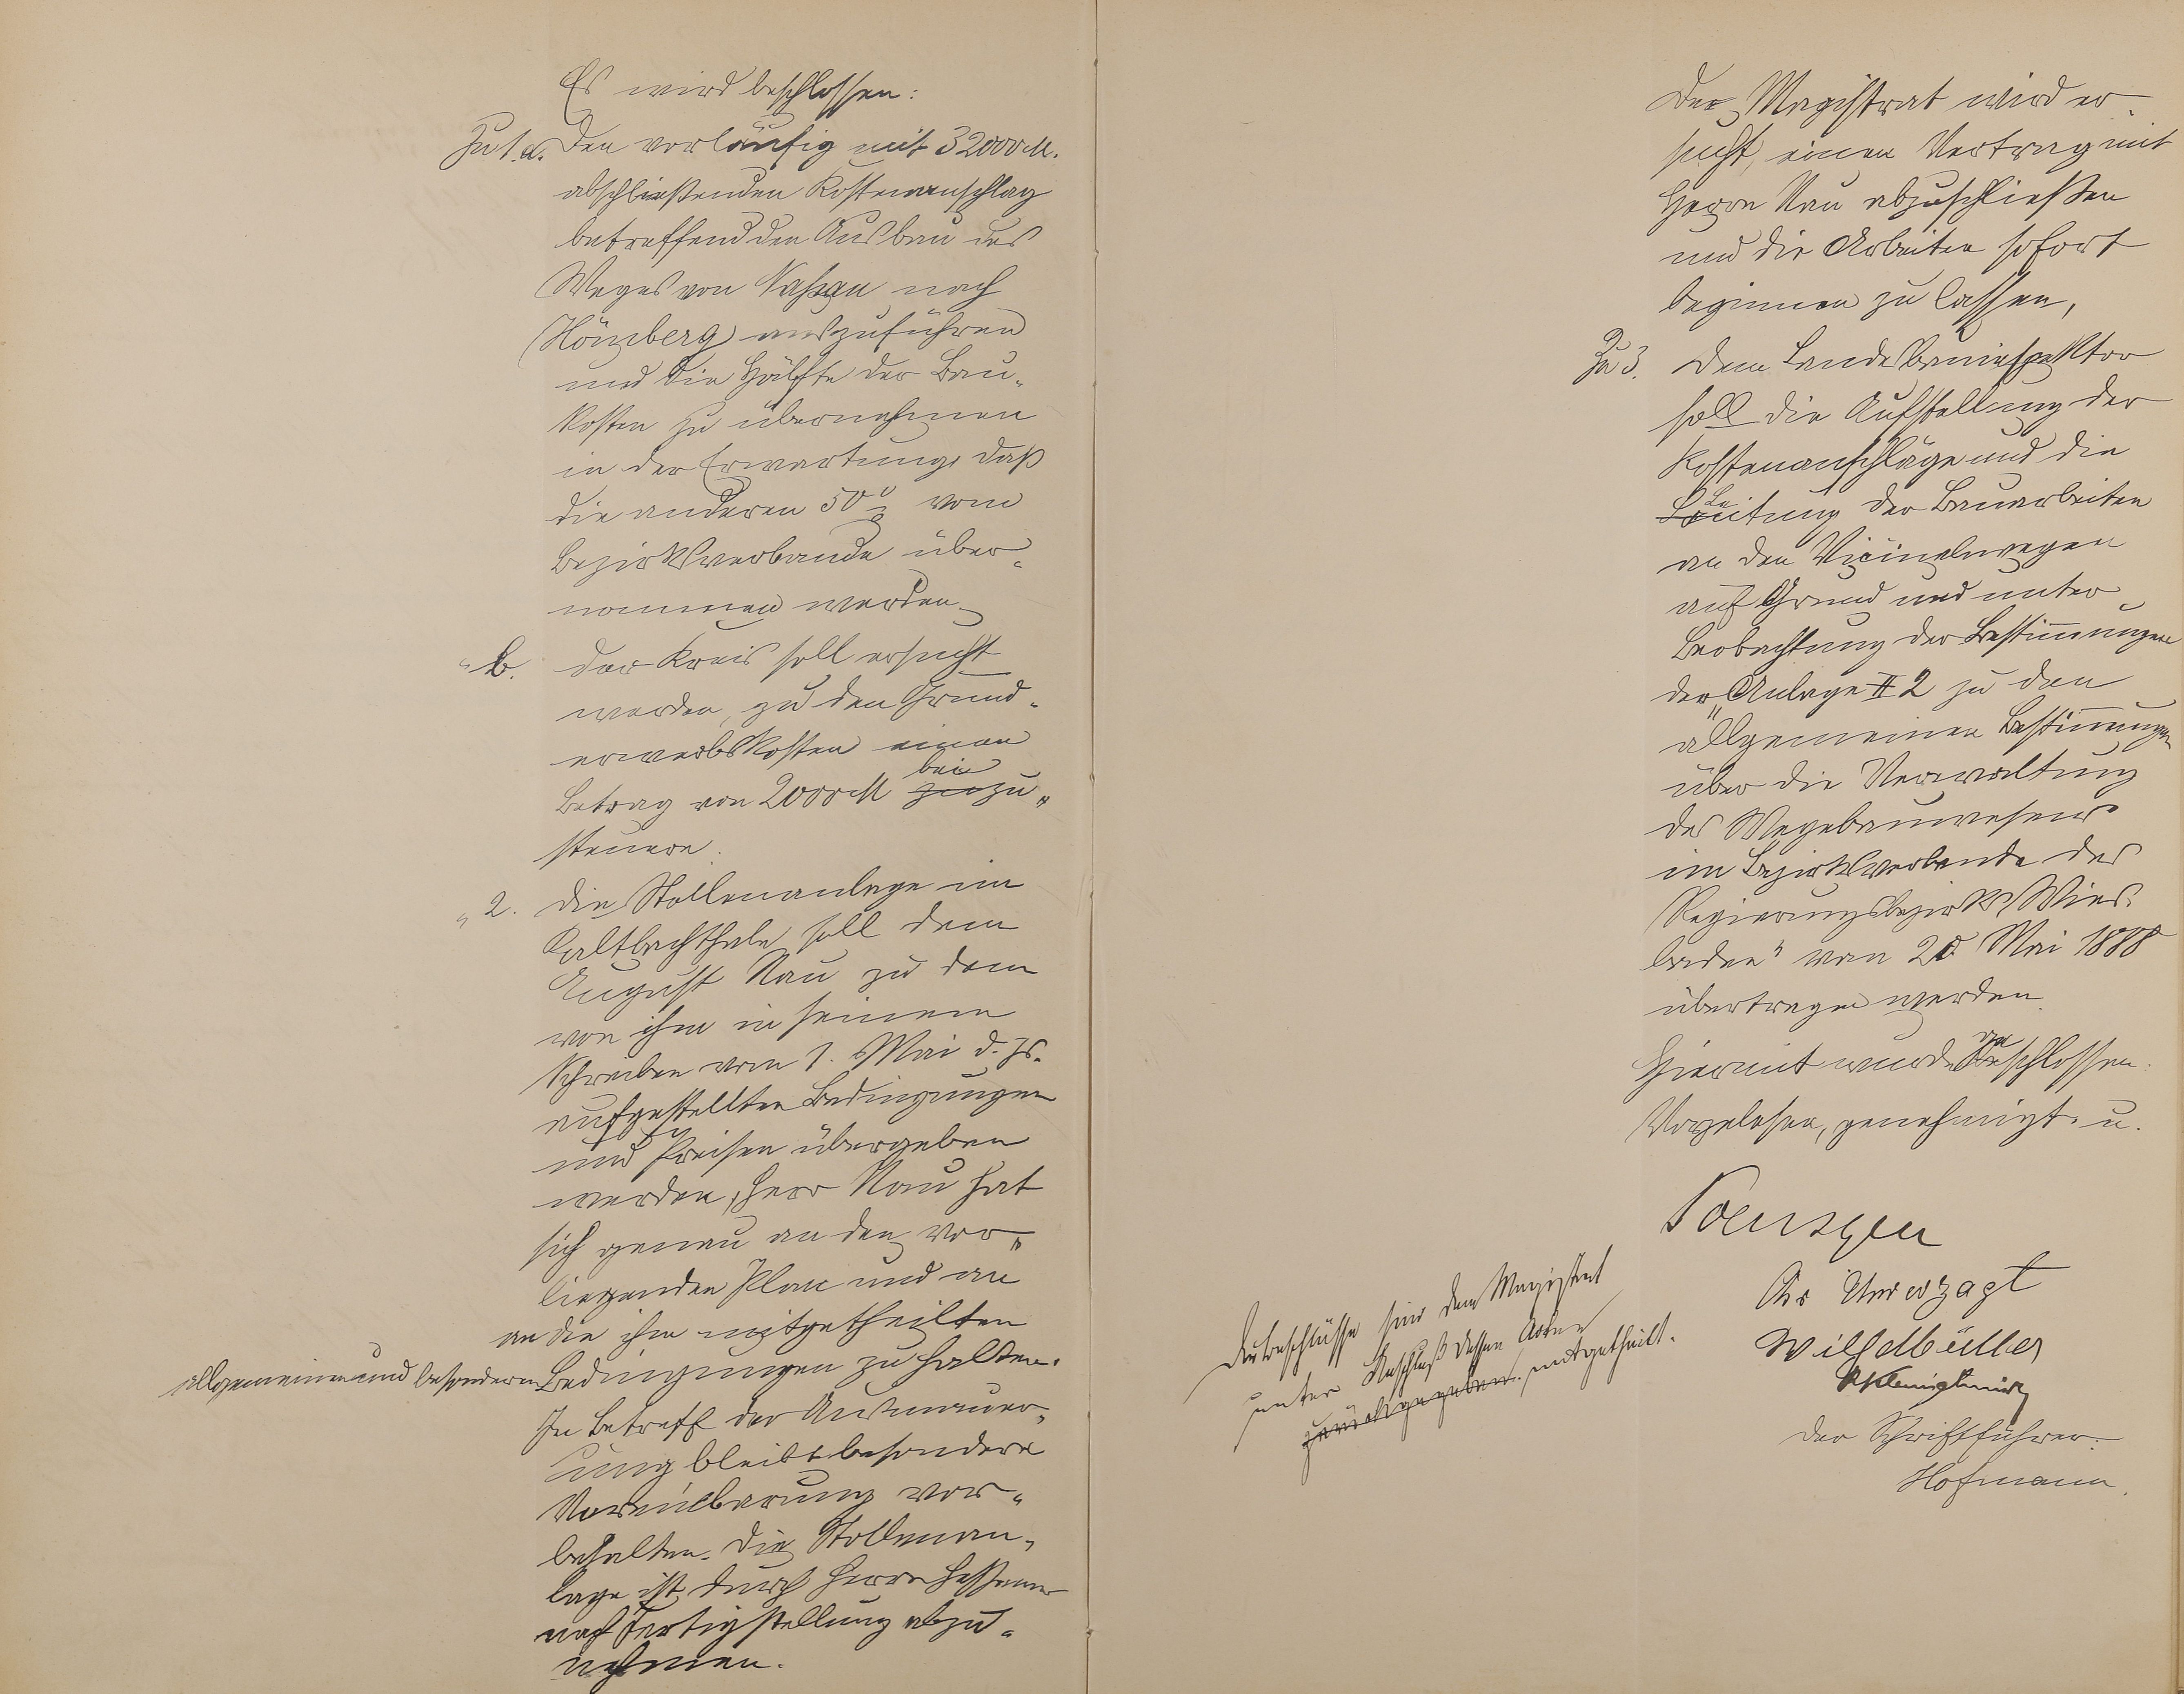 Es wird beschlossen:
Zu 1.a. Den vorläufig mit 32000 M.
abschließenden Kostenanschlag
betreffend den Ausbau des
Weges von Nassau nach
Hömberg auszuführen
und die Hälfte der Bau-
kosten zu übernehmen
in der Erwartung, daß
die anderen 50% vom
Bezirksverbande über-
nommen werden.
" b. der Kreis soll ersucht
werden, zu den Grund-
erwerbskosten einen
bei
Betrag von 2000 M zuzu-
steuern.
" 2. die Stollenanlage im
Kaltbachthale soll dem
August Nau zu dem
von ihm in seinem
Schreiben vom 1. Mai d. Js.
aufgestellten Bedingungen
und Preisen übergeben
werden, Herr Nau hat
sich genau an den vor-
liegenden Plan und an
an die ihm mitgetheilten
allgemeinen und besonderen Bedingungen zu halten.
In Betreff der Ausmauer-
ung bleibt besondere
Vereinbarung vor-
behalten. Die Stollenan-
lage ist durch Herrn
nach Fertigstellung abzu-
nehmen.
Der Magistrat wird er-
sucht, einen Vertrag mit
Herrn Nau abzuschließen
und die Arbeiten sofort
beginnen zu lassen,
Zu 3. Dem Landesbauinspektor
soll die Aufstellung der
Kostenanschläge und die
Leitung der Bauarbeiten
an den Vicinalwegen
auf Grund und unter
Beobachtung der Bestimmungen
der Anlage II 2 zu den
"allgemeinen Bestimmungen
über die Verwaltung
des Wegebauwesens
im Bezirksverbande des
Regierungsbezirks Wies-
baden" vom Mai 1888
übertragen werden.
ge
Hiermit wurde beschlossen.
Vorgelesen, genehmigt u.
Poensgen
Chr Unverzagt
Wilh Müller
Der Schriftführer:
Hofmann.
Die Beschlüsse sind dem Magistrat
unter Anschluß dessen Akten
zurückgegeben. mitgetheilt.